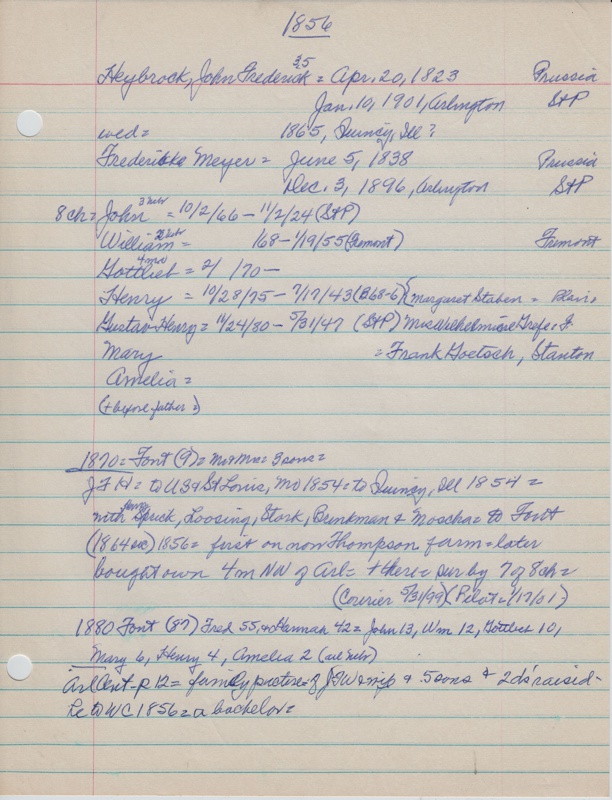 1856
35
Heybrock, John Frederick = Apr. 20, 1823 Prussia
Jan. 10, 1901, Arlington StP
wed = 1865, Quincy, Ill?
Frederikke Meyer = June 5, 1838 Prussia
Dec. 3, 1896, Arlington StP
3 Nebr
8 ch = John = 10/2/66 - 11/2/24 (StP)
Nebr
William = /68 - 1/9/55 (Fremont) Fremont
4 mo
Gottlieb = 2/ /70 -
Henry = 10/28/75 - 7/17/43 (B68-6) (Margaret Staben = Plain.
Gustav Henry = 11/24/80 - 5/31/47 (StP) Grefe
Mary = Frank Goetsch, Stanton
Amelia =
(+ before father =)
1870 = Font (9) = Mr + Mrs = 3 sons =
J F H = to US + St Louis, Mo 1854 = to Quincy, Ill 1854 =
with Spuck, Loosing, Stork, Brinkman + = to Font
(1864 ) 1856 = first on now Thompson farm = later
bought own 4 m NW of Arl = + there = sur by 7 of 8 ch =
(Courier 5/31/99) (Pilot = 1/17/01)
1880 Font (87) Fred 55, + Hannah 42 = John 13, Wm 12, Gottlieb 10,
Mary 6, Henry 4, Amelia 2 (all Nebr)
Arl Cent - p 12 = family picture = of J F W + wife + 5 sons + 2 ds' raised -
he to WC 1856 = a bachelor =